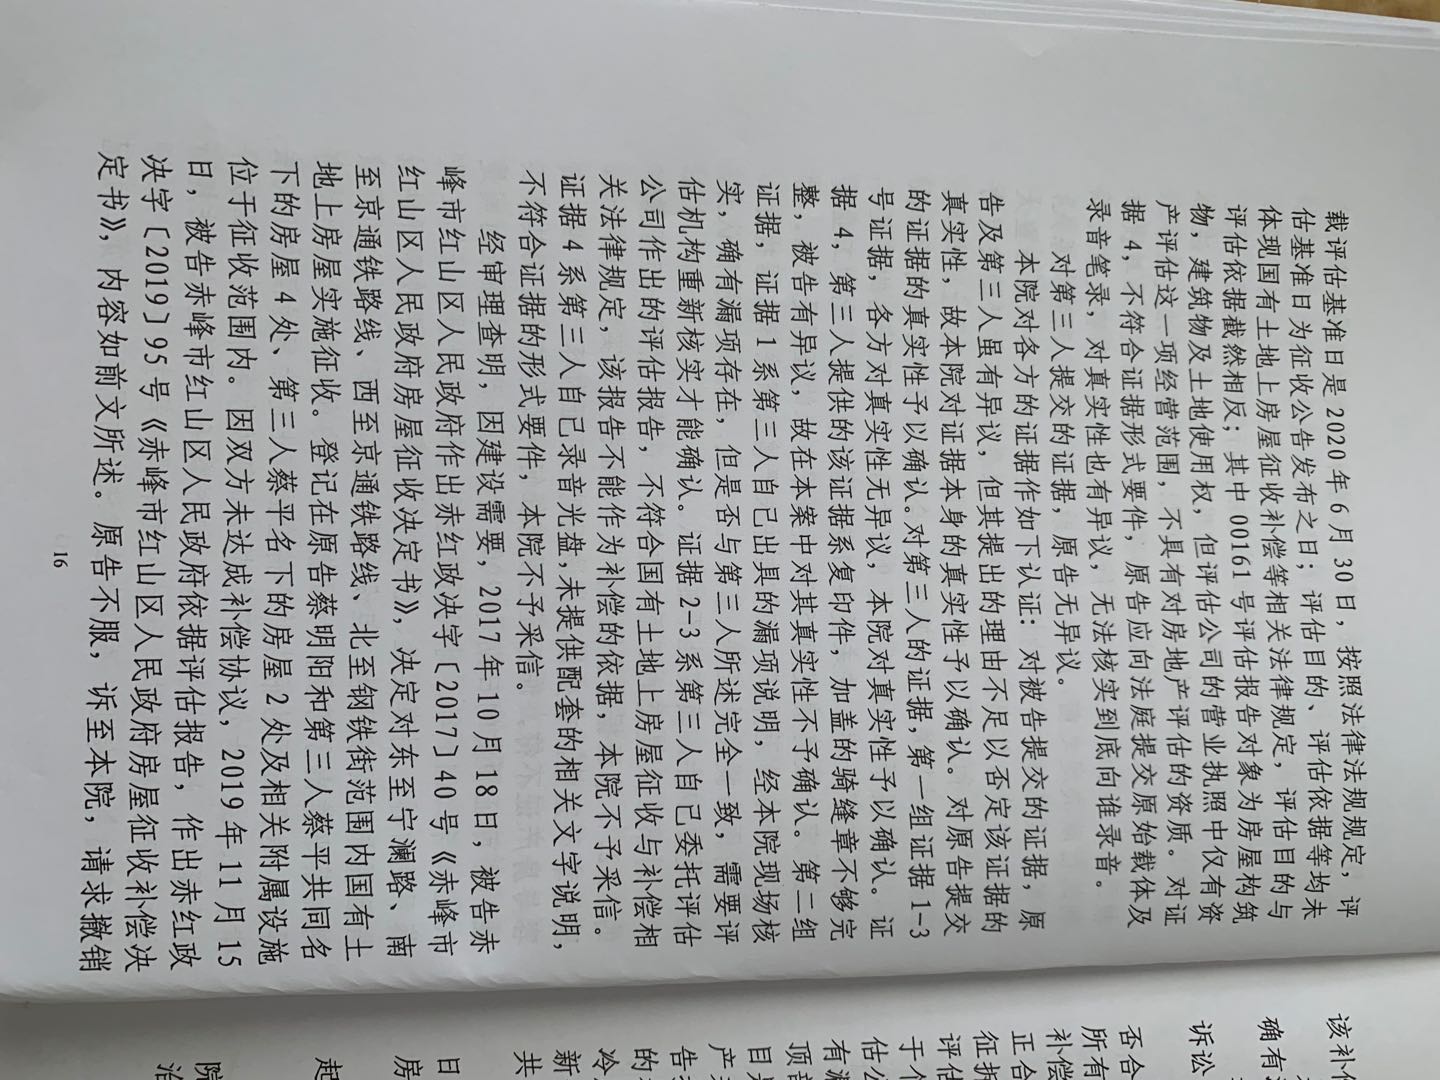 裁评估基准日是2020年6月30日，按照法律法规规定，评
估基准日为征收公告发布之日；评估目的、评估依据等均未
体现国有土地上房屋征收补偿等相关法律规定，评估目的与
评估依据截然相反；其中00161号评估报告对象为房屋构筑
物，建筑物及土地使用权，但评估公司的营业执照中仅有资
产评估这一项经营范围，不具有对房地产评估的资质。对证
据4，不符合证据形式要件，原告应向法庭提交原始载体及
录音笔录，对真实性也有异议，无法核实到底向谁录音。
对第三人提交的证据，原告无异议。
本院对各方的证据作如下认证：对被告提交的证据，原
告及第三人虽有异议，但其提出的理由不足以否定该证据的
真实性，故本院对证据本身的真实性予以确认。对原告提交
的证据的真实性予以确认。对第三人的证据，第一组证据1-3
号证据，各方对真实性无异议，本院对真实性予以确认。证
据4，第三人提供的该证据系复印件，加盖的骑缝章不够完
整，被告有异议，故在本案中对其真实性不予确认。第二组
证据，证据1系第三人自己出具的漏项说明，经本院现场核
实，确有漏项存在，但是否与第三人所述完全一致，需要评
估机构重新核实才能确认。证据2-3系第三人自己委托评估
公司作出的评估报告，不符合国有土地上房屋征收与补偿相
关法律规定，该报告不能作为补偿的依据，本院不予采信。
证据4系第三人自己录音光盘，未提供配套的相关文字说明，
不符合证据的形式要件，本院不予采信。
经审理查明，因建设需要，2017年10月18日，被告赤
峰市红山区人民政府作出赤红政决字〔2017〕40号《赤峰市
红山区人民政府房屋征收决定书》，决定对东至宁澜路、南
至京通铁路线、西至京通铁路线、北至钢铁街范围内国有土
地上房屋实施征收。登记在原告蔡明阳和第三人蔡平共同名
下的房屋4处、第三人蔡平名下的房屋2处及相关附属设施
位于征收范围内。因双方未达成补偿协议，2019年11月15
日，被告赤峰市红山区人民政府依据评估报告，作出赤红政
决字〔2019〕95号《赤峰市红山区人民政府房屋征收补偿决
定书》，内容如前文所述。原告不服，诉至本院，请求撤销
16
该补
确有
诉讼
否合
所有
补偿
正合
征拆
评估
于个
估公
有漏
顶部
目
产
告
的
冷
新
共
日
房
起
院
治